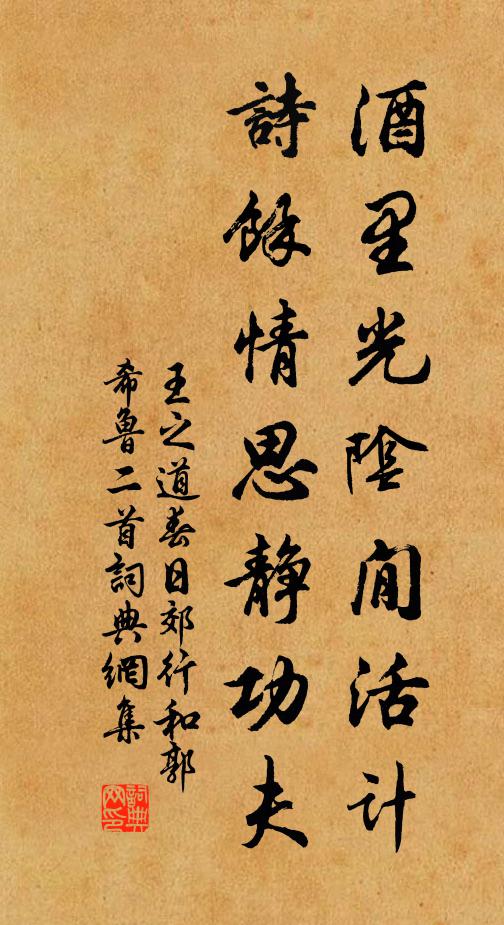 酒里光陰閒活計
詩餘情思靜功夫
王之道春日郊行和郭
希魯二首詞典網集
詞典
网印